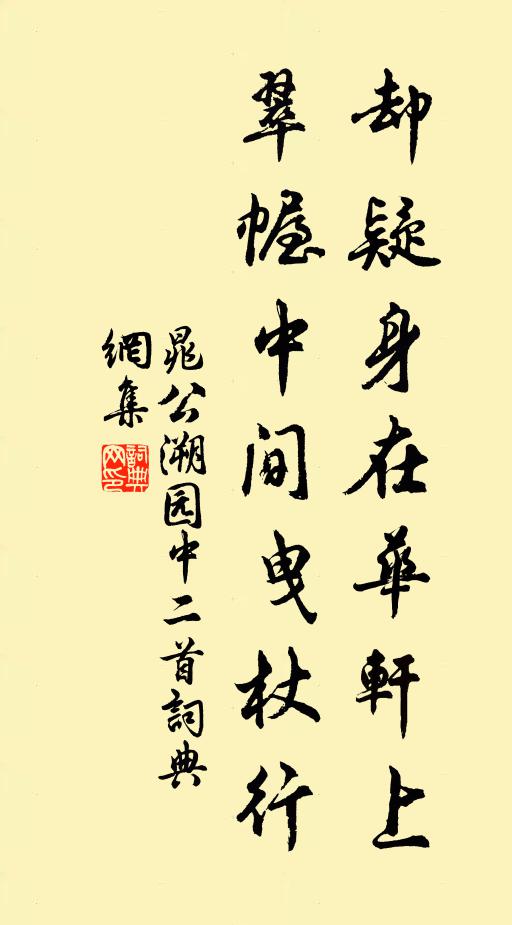 却疑身在華軒上
翠幄中間曳杖行
晁公溯园中二首詞典
網集
詞典網印